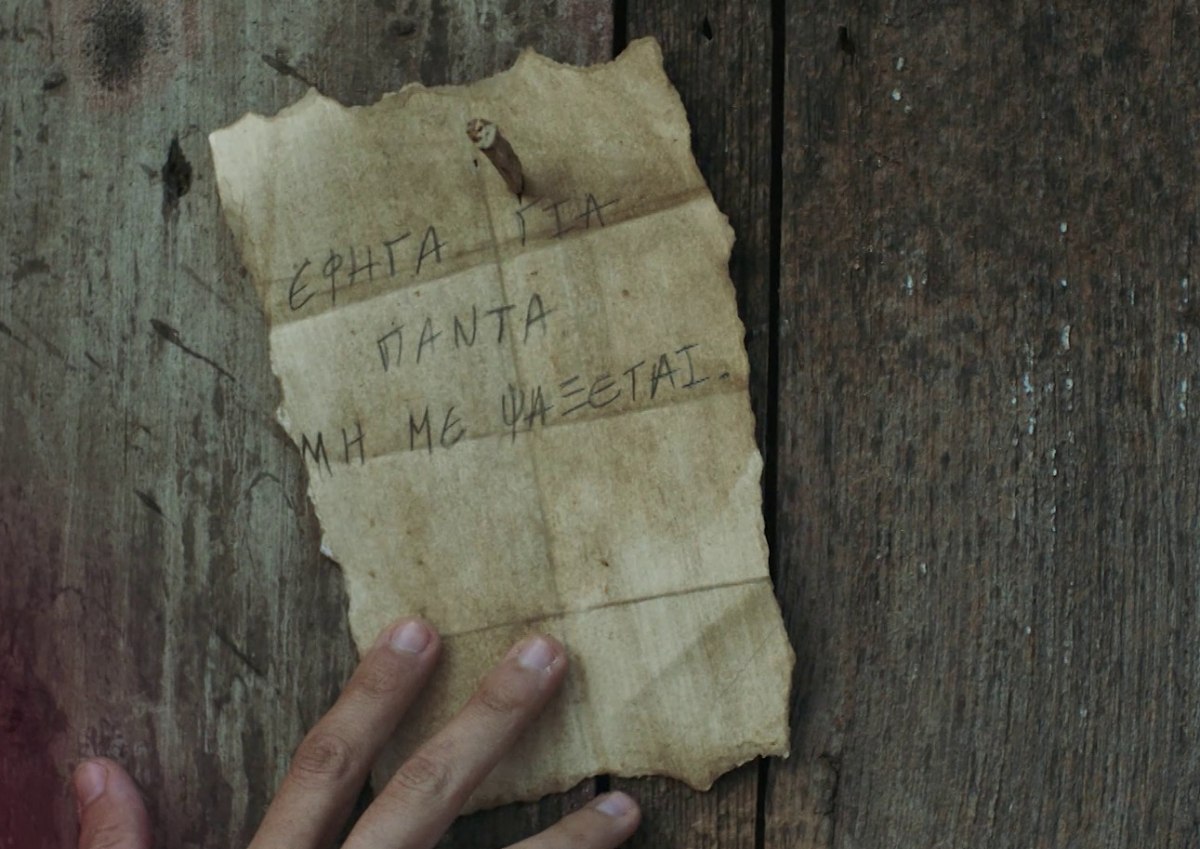 ΕΦΗΓΑ ΓΙΑ
ΠΑΝΤΑ
ΜΗ ΜΕ ΨΑΞΕΤΑΙ.